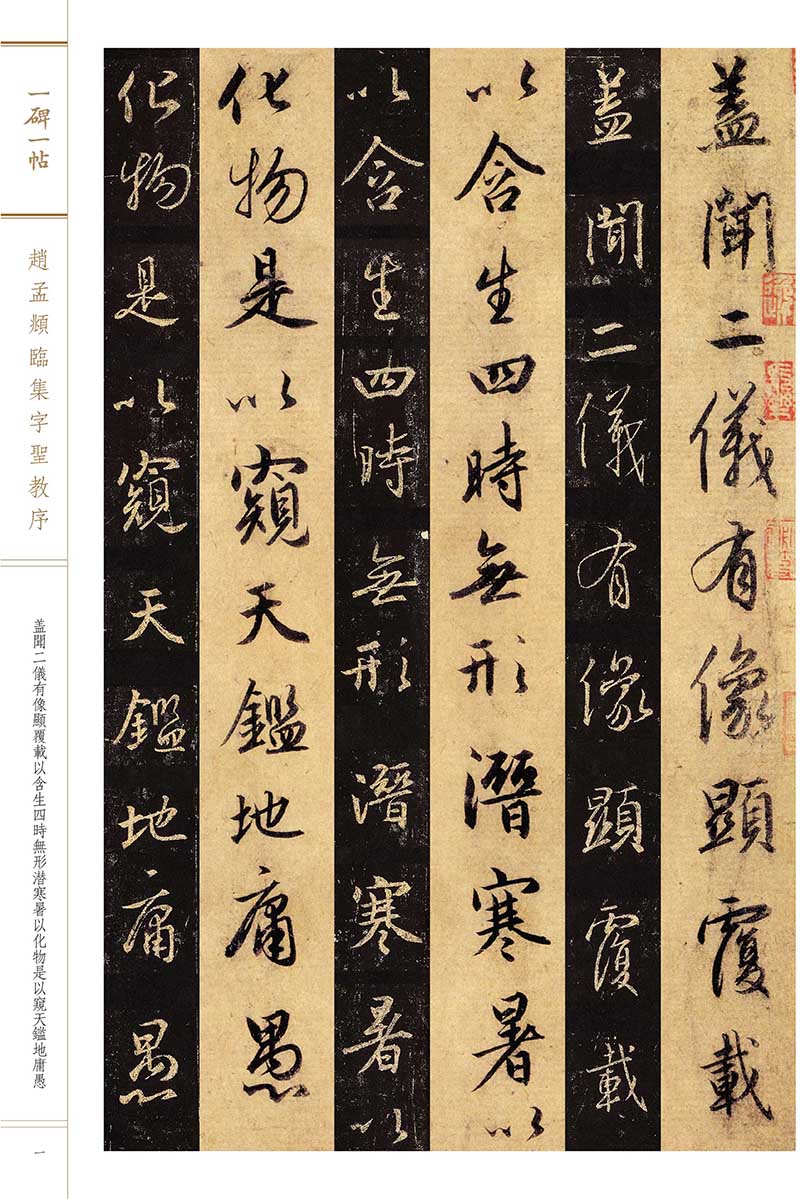 盖聞二儀有像顯覆載
盖聞二儀有像顯覆載
以含生四時無形潛寒暑以
以含生四時無形潛寒暑以
化物是以窺天鑑地庸愚
化物是以窺天鑑地庸愚
一碑一帖
趙孟頫臨集字聖教序
盖聞二儀有像顯覆載以含生四時無形潛寒暑以化物是以窺天鑑地庸愚
一